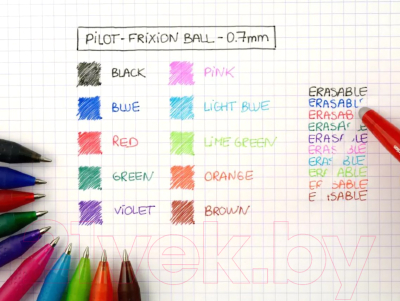 PILOT-FRIXION BALL - 0.7mm
BLACK
BLUE
RED
GREEN
VIOLET
PINK
LIGHT BLUE
LIME GREEN
ORANGE
BROWN
ERASABLE
ERASABL
ERASAB
ERASABLE
ERASABLE
ERAS BLE
ERAS BLE
ERA ABLE
ER SABLE
E SABLE
21vek.by